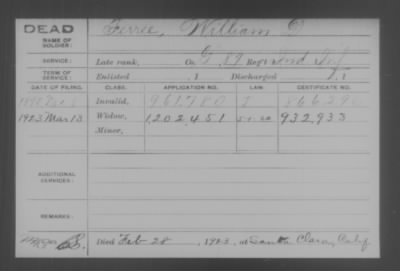 DEAD
NAME OF SOLDIER: Ferree, William D
SERVICE: Late rank, Co. G. 89 Reg't Ind Inf
TERM OF SERVICE: Enlisted , 1 Discharged , 1
DATE OF FILING. CLASS. APPLICATION NO. LAW. CERTIFICATE NO.
Invalid, 961780
1923 Mar 13 Widow, 1202451 932933
Minor,
ADDITIONAL SERVICES:
REMARKS:
Died Feb 28, 1923, at Santa Clara, Calif